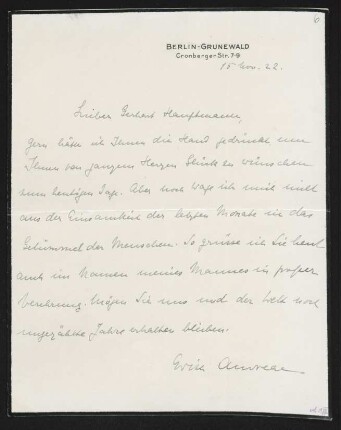 6
BERLIN-GRUNEWALD
Cronberger Str. 7-9
15 Nov. 22.
Lieber Gerhart Hauptmann,
gern hätte ich Ihnen die Hand gedrückt um
Ihnen von ganzem Herzen Glück zu wünschen
zum heutigen Tage. Aber noch wage ich mich nicht
aus der Einsamkeit der letzten Monate in das
Getümmel der Menschen. So grüsse ich Sie heut
auch im Namen meines Mannes in großer
Verehrung. Mögen Sie uns und der Welt noch
ungezählte Jahre erhalten bleiben.
Andreae